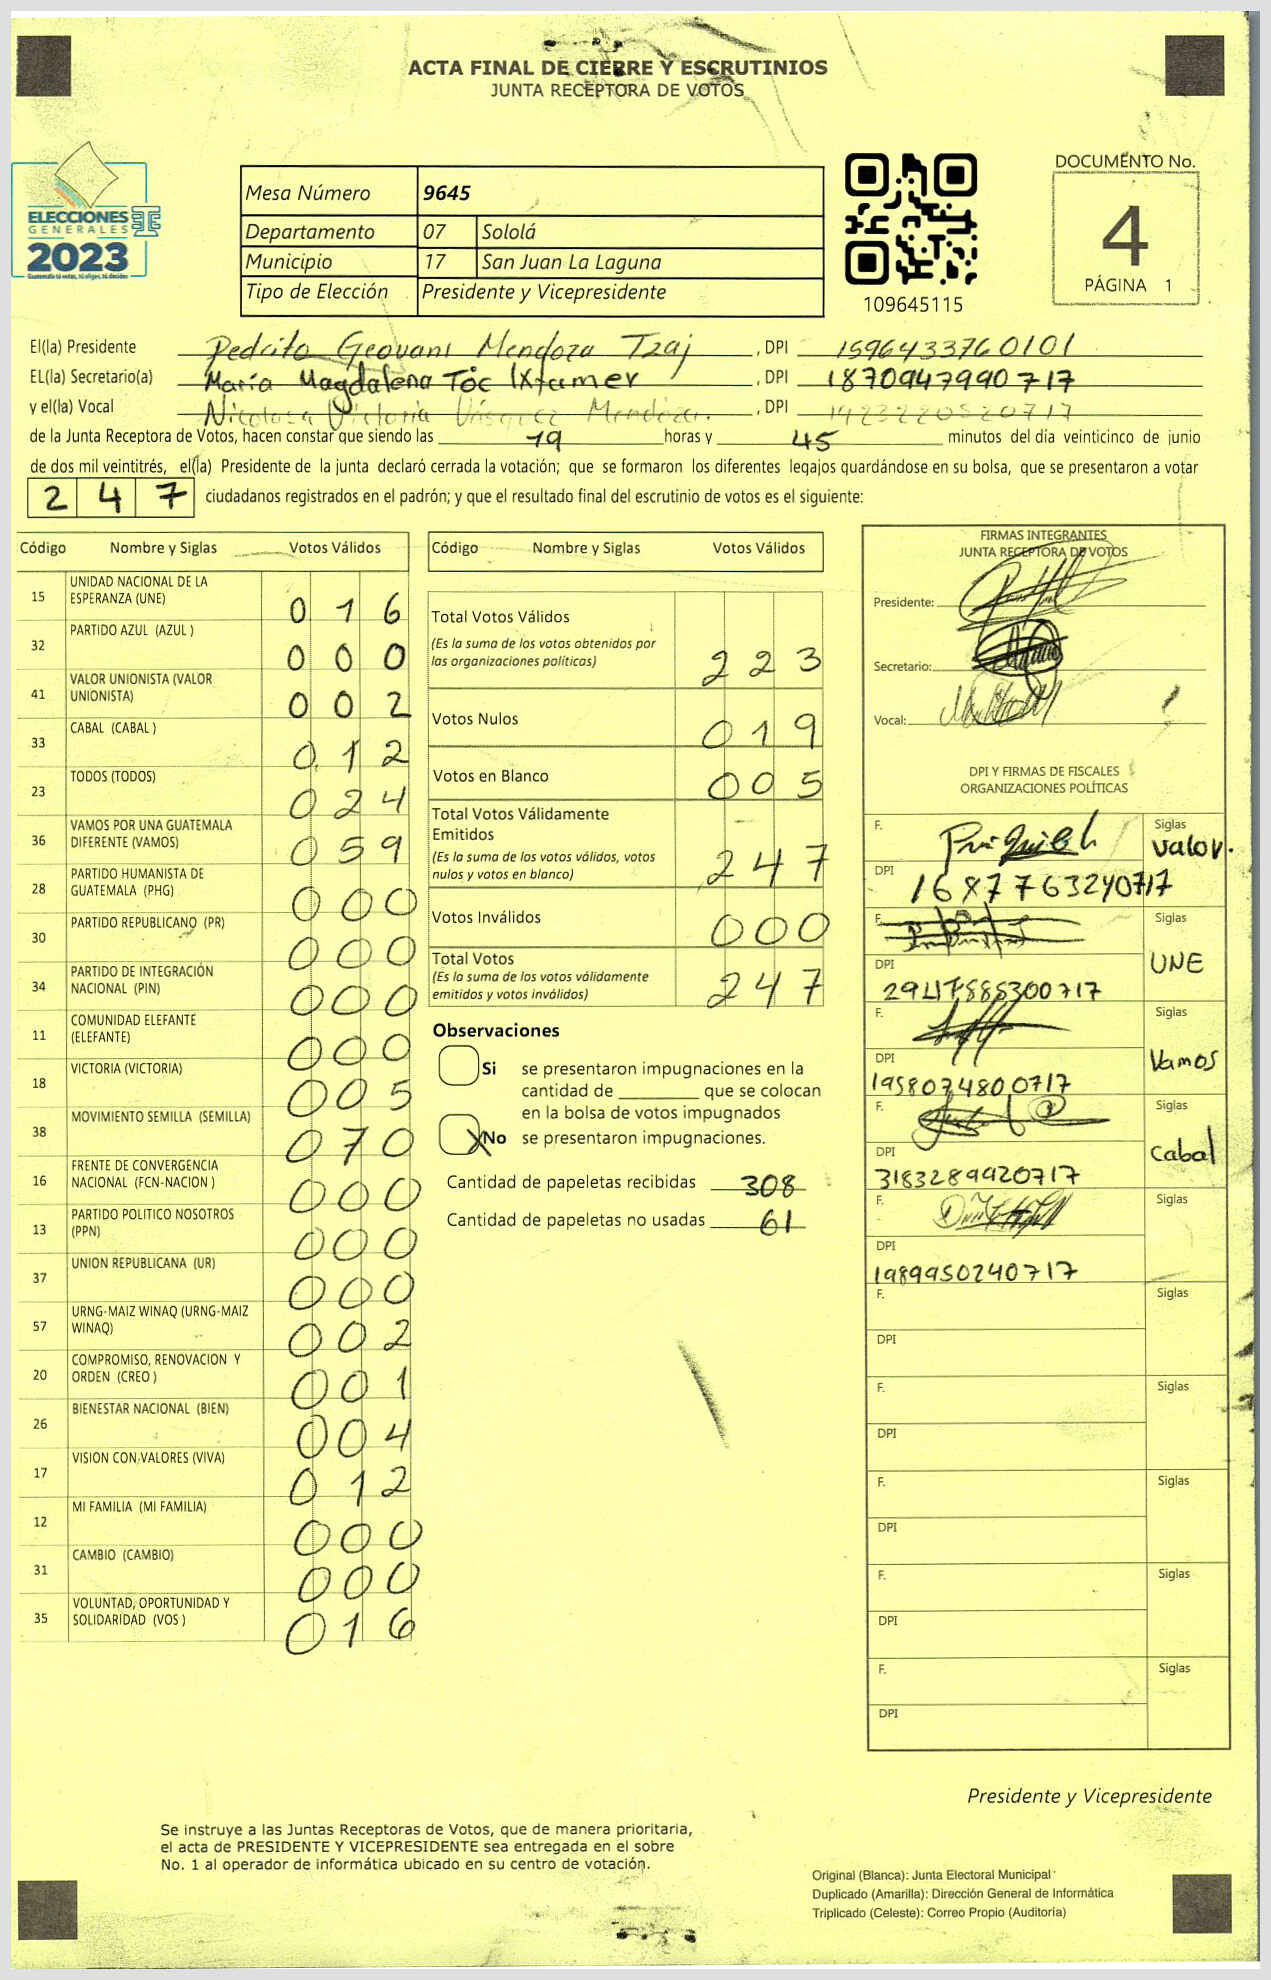 ACTA FINAL DE CIERRE Y ESCRUTINIOS
JUNTA RECEPTORA DE VOTOS
ELECCIONES
GENERALES
2023
Guatemala tú votas, tú eliges, tú decides
Mesa Número 9645
Departamento 07 Sololá
Municipio 17 San Juan La Laguna
Tipo de Elección Presidente y Vicepresidente
109645115
DOCUMENTO No.
4
PÁGINA 1
El(la) Presidente Pedrito Geovani Mendoza Tzaj, DPI 1596433760101
EL(la) Secretario(a) María Magdalena Tóc Ixtamer, DPI 1870947990717
y el(la) Vocal Nicolasa Victoria Vásquez Mendoza., DPI 1423220520717
de la Junta Receptora de Votos, hacen constar que siendo las 19 horas y 45 minutos del día veinticinco de junio
de dos mil veintitrés, el(la) Presidente de la junta declaró cerrada la votación; que se formaron los diferentes legajos quardándose en su bolsa, que se presentaron a votar
247 ciudadanos registrados en el padrón; y que el resultado final del escrutinio de votos es el siguiente:
Código Nombre y Siglas Votos Válidos
15 UNIDAD NACIONAL DE LA ESPERANZA (UNE) 016
32 PARTIDO AZUL (AZUL ) 000
41 VALOR UNIONISTA (VALOR UNIONISTA) 002
33 CABAL (CABAL ) 012
23 TODOS (TODOS) 024
36 VAMOS POR UNA GUATEMALA DIFERENTE (VAMOS) 059
28 PARTIDO HUMANISTA DE GUATEMALA (PHG) 000
30 PARTIDO REPUBLICANO (PR) 000
34 PARTIDO DE INTEGRACIÓN NACIONAL (PIN) 000
11 COMUNIDAD ELEFANTE (ELEFANTE) 000
18 VICTORIA (VICTORIA) 005
38 MOVIMIENTO SEMILLA (SEMILLA) 070
16 FRENTE DE CONVERGENCIA NACIONAL (FCN-NACION ) 000
13 PARTIDO POLITICO NOSOTROS (PPN) 000
37 UNION REPUBLICANA (UR) 000
57 URNG-MAIZ WINAQ (URNG-MAIZ WINAQ) 002
20 COMPROMISO, RENOVACION Y ORDEN (CREO ) 001
26 BIENESTAR NACIONAL (BIEN) 004
17 VISION CON VALORES (VIVA) 012
12 MI FAMILIA (MI FAMILIA) 000
31 CAMBIO (CAMBIO) 000
35 VOLUNTAD, OPORTUNIDAD Y SOLIDARIDAD (VOS ) 016
Código Nombre y Siglas Votos Válidos
Total Votos Válidos 223
(Es la suma de los votos obtenidos por
las organizaciones políticas)
Votos Nulos 019
Votos en Blanco 005
Total Votos Válidamente
Emitidos 247
(Es la suma de los votos válidos, votos
nulos y votos en blanco)
Votos Inválidos 000
Total Votos 247
(Es la suma de los votos válidamente
emitidos y votos inválidos)
Observaciones
Si se presentaron impugnaciones en la
cantidad de ________ que se colocan
en la bolsa de votos impugnados
X No se presentaron impugnaciones.
Cantidad de papeletas recibidas 308
Cantidad de papeletas no usadas 61
FIRMAS INTEGRANTES
JUNTA RECEPTORA DE VOTOS
Presidente:
Secretario:
Vocal:
DPI Y FIRMAS DE FISCALES
ORGANIZACIONES POLÍTICAS
F. Siglas Valor.
DPI 1687763240717
F. Siglas UNE
DPI
F. Siglas Vamos
DPI 1958074800717
F. Siglas Cabal
DPI 3183289920717
F. Siglas
DPI 1989950240717
F. Siglas
DPI
F. Siglas
DPI
F. Siglas
DPI
F. Siglas
DPI
F. Siglas
DPI
Presidente y Vicepresidente
Se instruye a las Juntas Receptoras de Votos, que de manera prioritaria,
el acta de PRESIDENTE Y VICEPRESIDENTE sea entregada en el sobre
No. 1 al operador de informática ubicado en su centro de votación.
Original (Blanca): Junta Electoral Municipal
Duplicado (Amarilla): Dirección General de Informática
Triplicado (Celeste): Correo Propio (Auditoría)